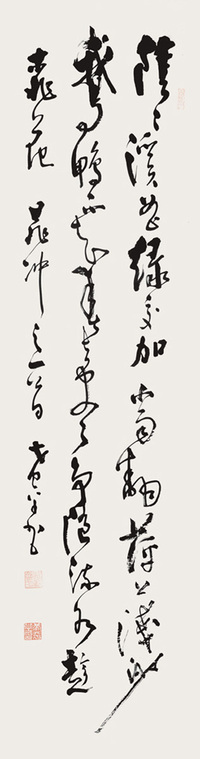 陰々溪曲緑交加小雨翻萍上淺沙
鵝鴨不知春去盡争隨流水趁
桃花 晁冲之春日